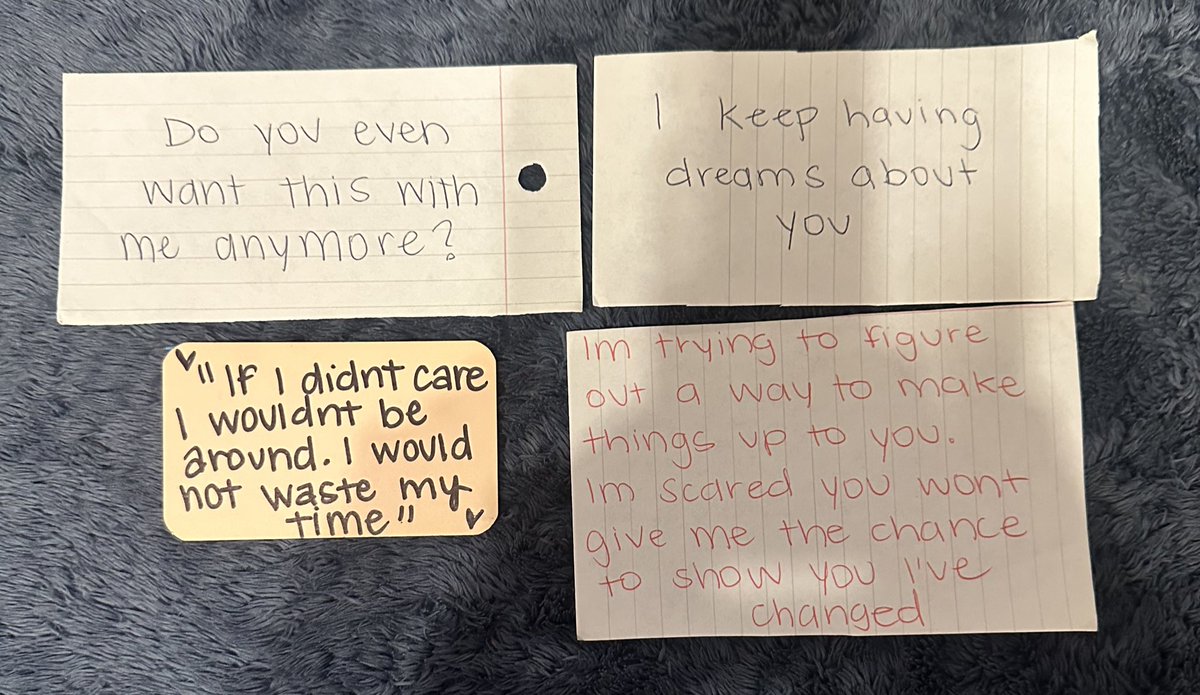 Do you even
want this with
me anymore?
I keep having
dreams about
you
"If I didnt care
I wouldnt be
around. I would
not waste my
time"
Im trying to figure
out a way to make
things up to you.
Im scared you wont
give me the chance
to show you I've
changed